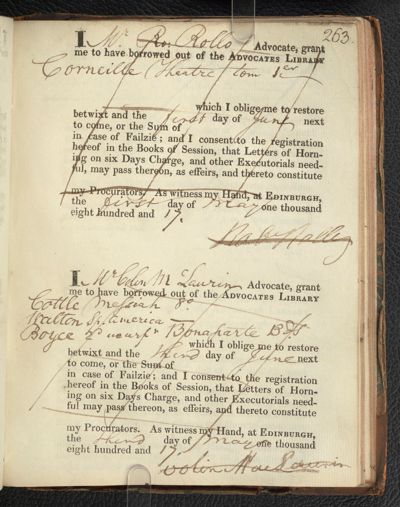 263.
I Mr Ro. Rollo Advocate, grant
me to have borrowed out of the ADVOCATES LIBRARY
Corneille Theatre tom 1er
which I oblige me to restore
betwixt and the first day of June next
to come, or the Sum of
in case of Failzie; and I consent to the registration
hereof in the Books of Session, that Letters of Horn-
ing on six Days Charge, and other Executorials need-
ful, may pass thereon, as effeirs, and thereto constitute
my Procurators. As witness my Hand, at EDINBURGH,
the first day of May one thousand
eight hundred and 17.
I Mr Colin McLaurin Advocate, grant
me to have borrowed out of the ADVOCATES LIBRARY
Cottle Messiah 8o
Walton S. America
Boyce 2d usurpn Bonaparte
which I oblige me to restore
betwixt and the third day of June next
to come, or the Sum of
in case of Failzie; and I consent to the registration
hereof in the Books of Session, that Letters of Horn-
ing on six Days Charge, and other Executorials need-
ful may pass thereon, as effeirs, and thereto constitute
my Procurators. As witness my Hand, at EDINBURGH,
the third day of May one thousand
eight hundred and 17
Colin MacLaurin